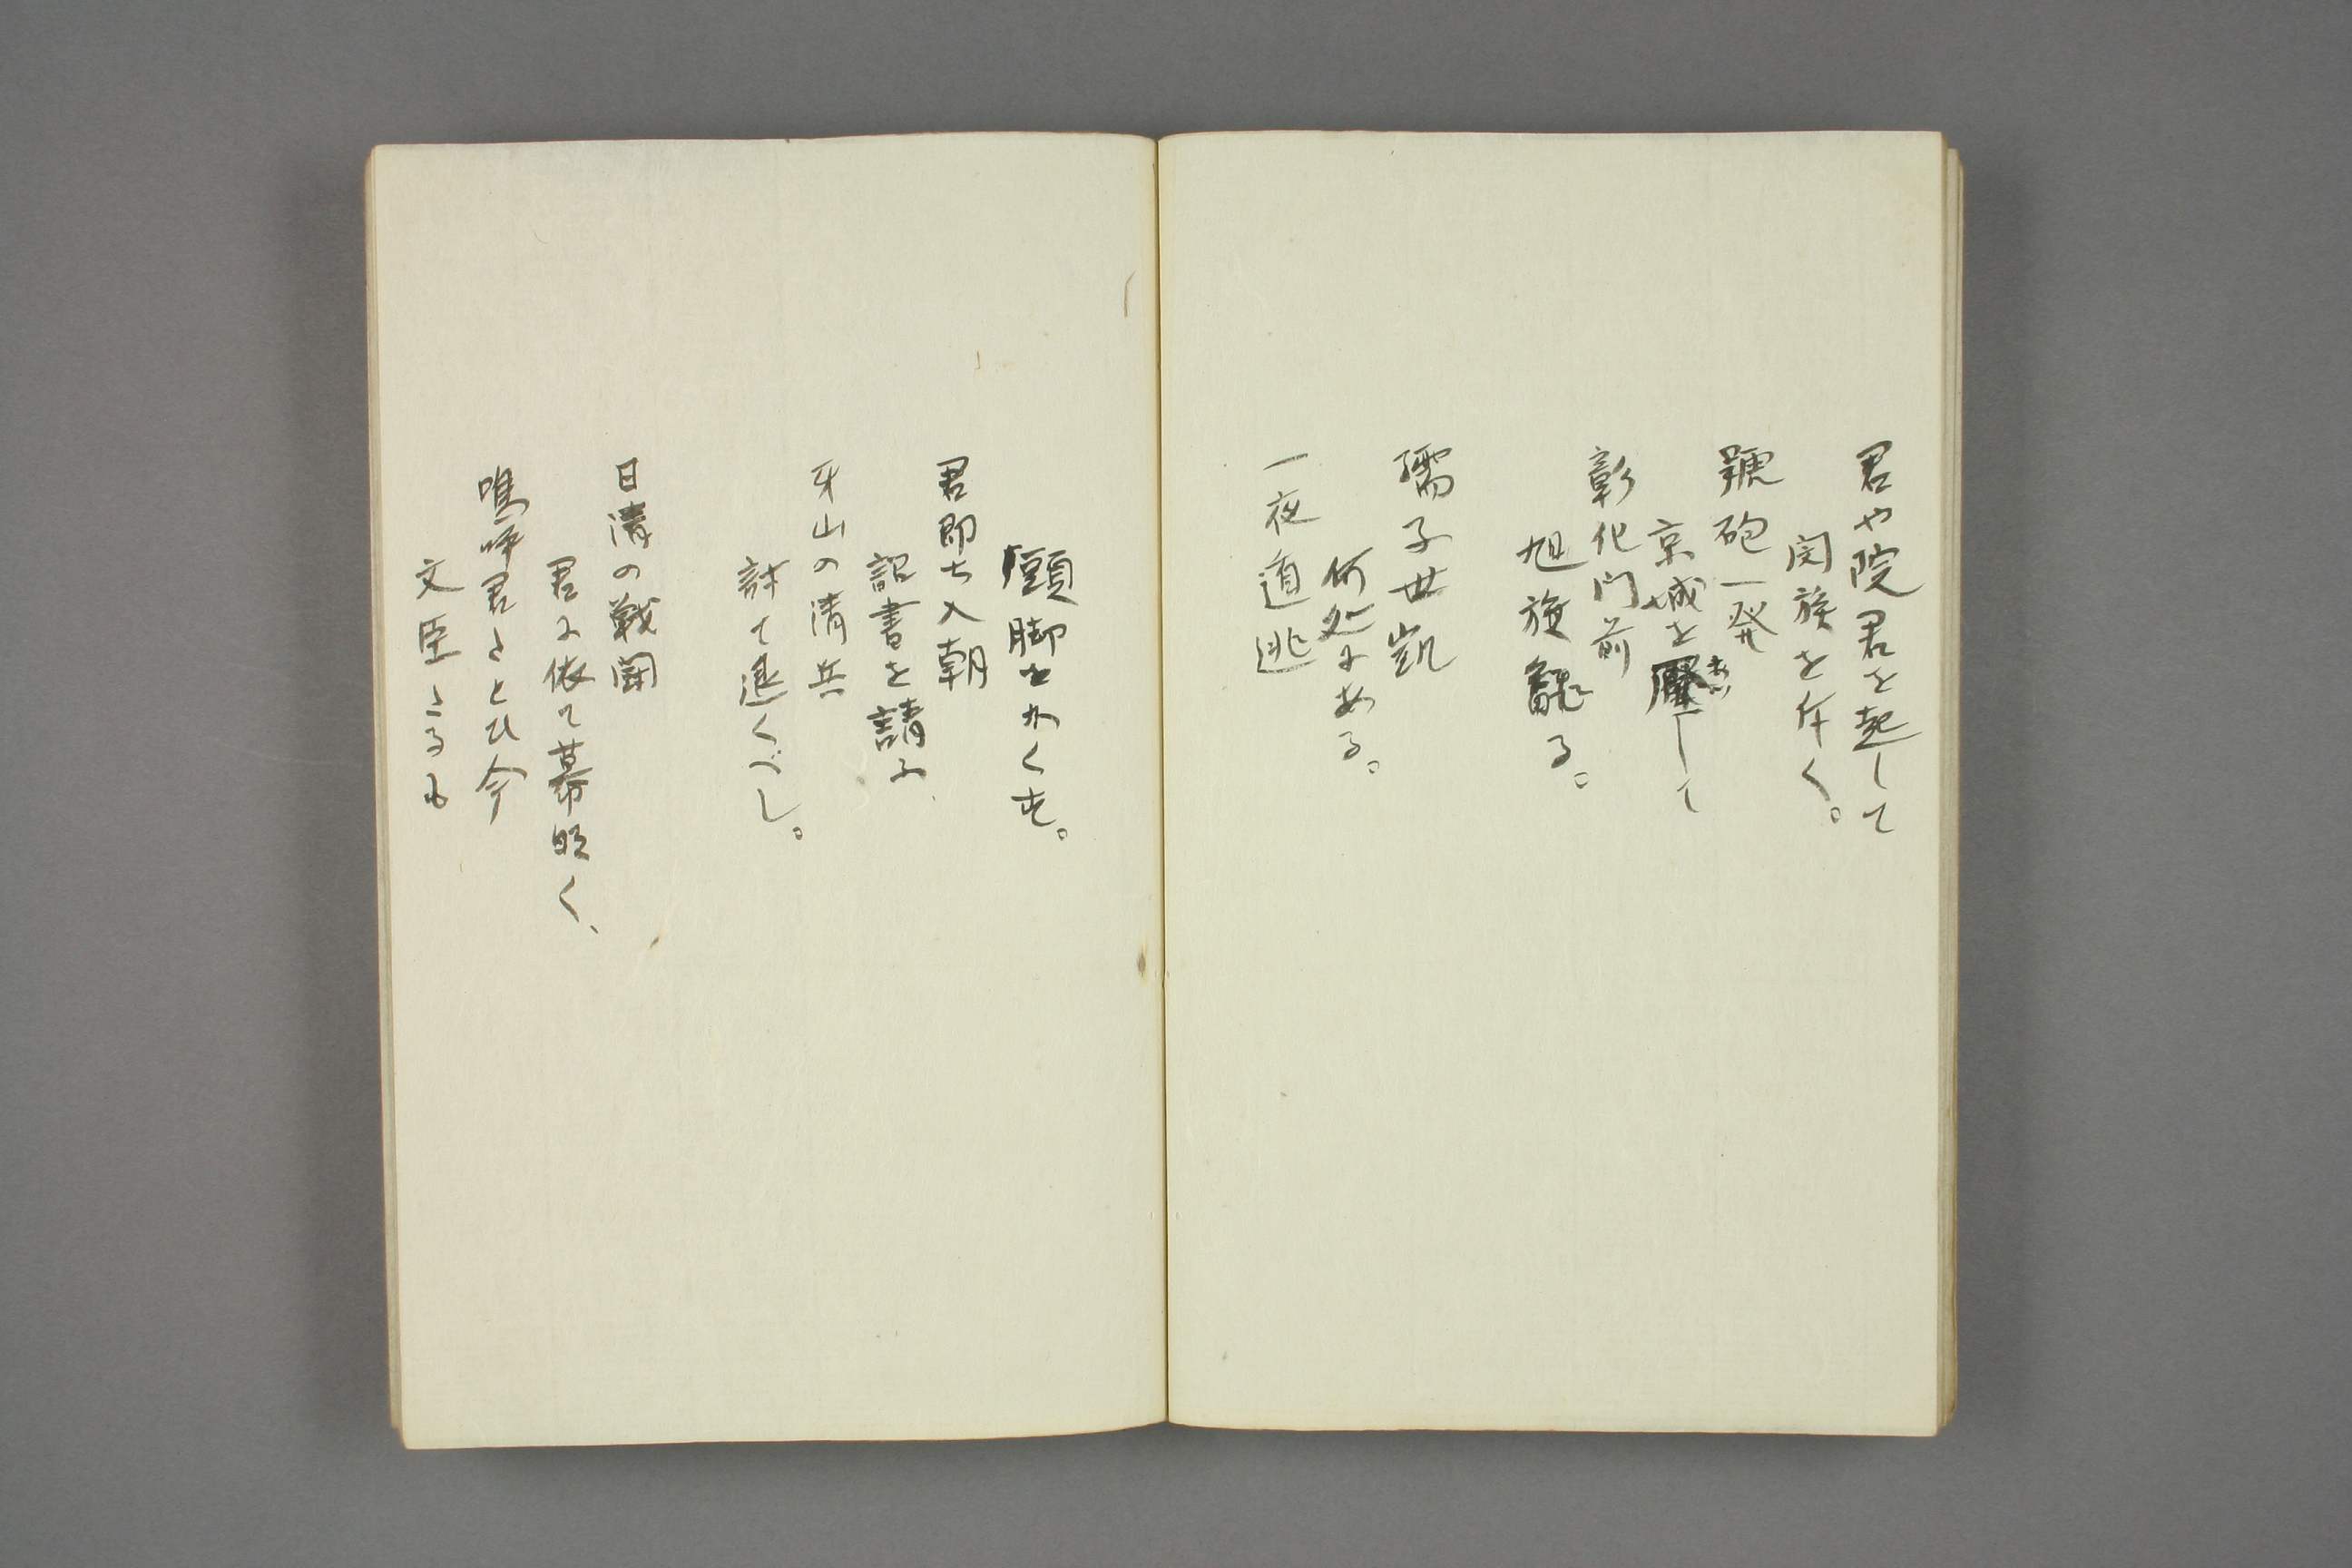 君や院君を起して
閔族を斥く。
號砲一発
京城を壓して
彰化门前
旭旗飜る。
孺子世凱
何処にある。
一夜遁逃
頭脚をかくす。
君即ち入朝
詔書を請ふ
牙山の清兵
討て退くべし。
日清の戦闘
君に依て幕明く、
嗚呼君たとひ今
文臣たるも